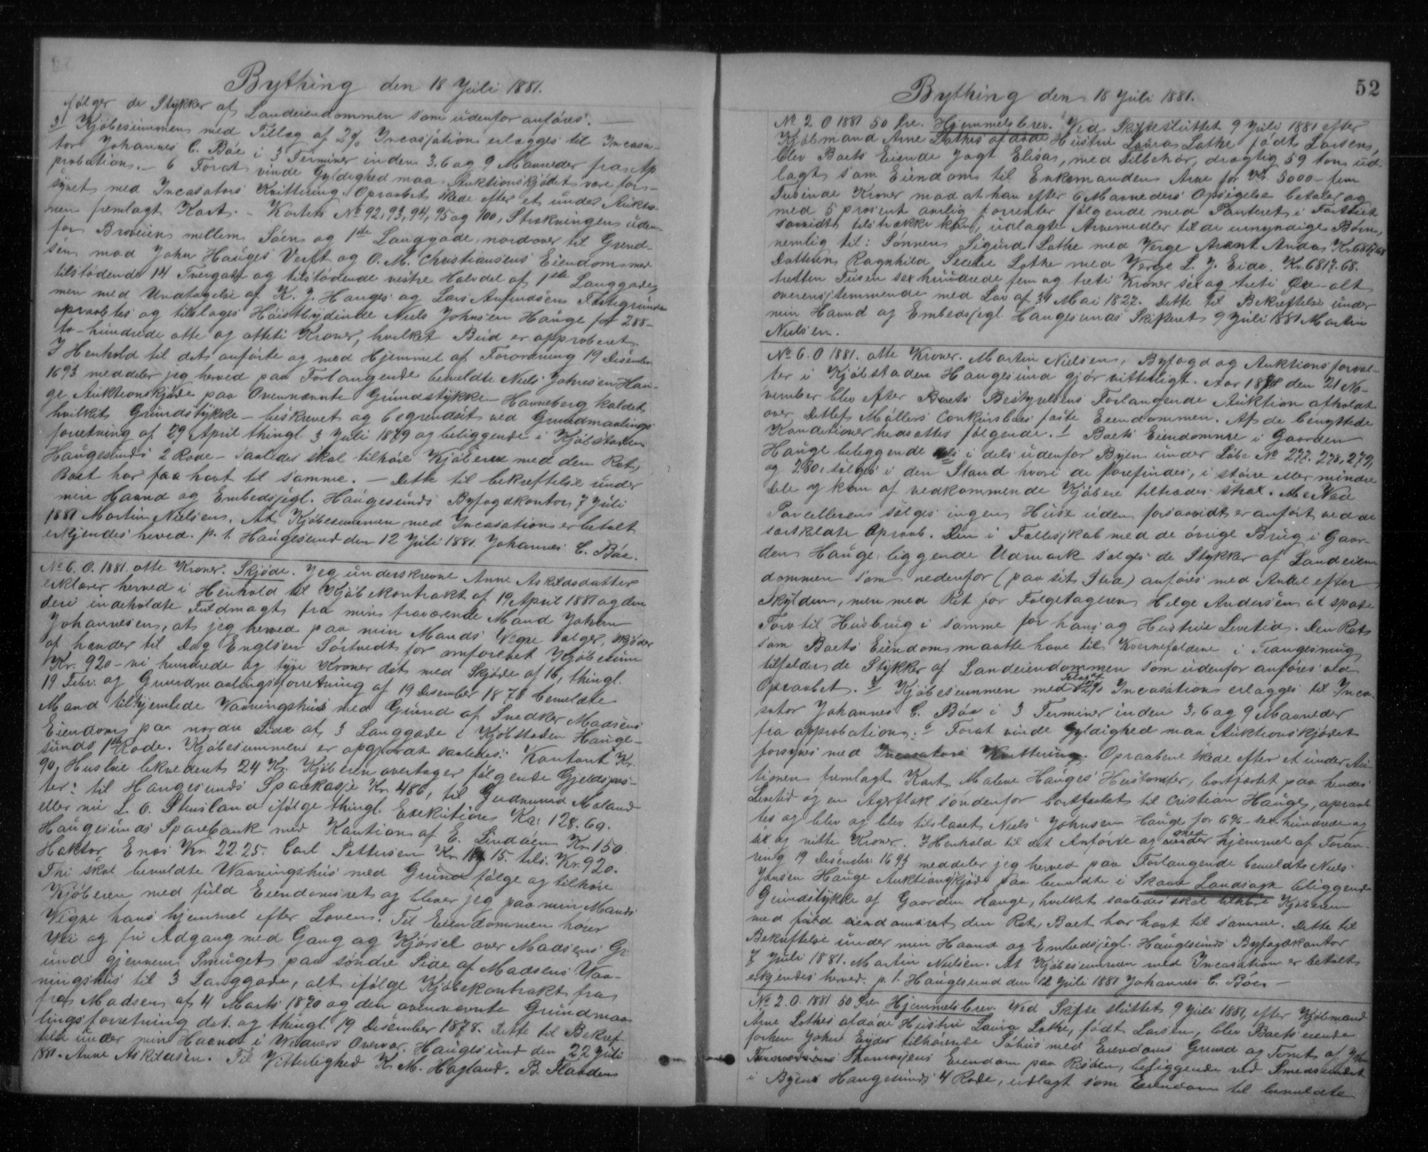 Bything den 18 Juli 1881.
følger de Stykker af Landeiendommen som udenfor anføres. —
3 Kjøbesummen med Tillæg af 2% Incasjation erlægges til Incasa-
tor Johannes C. Bøe i 3 Terminer inden 3. 6 og 9 Maaneder fra Ap
probation. — 6 Forat vinde Gyldighed maa Auktionskjødet være for-
synet med Incasators Kvittering. Opraabet skede efter et under Auktio-
nen fremlagt Kart. — Kartets No 92, 93, 94, 95 og 100, Strækningen uden-
for Broveien mellem Søen og 1ste Langgade nordover til Grænd-
sen mod John Hauges Verft og O. M. Christiansens Eiendom med
tilstødende 14 Tvergade og tilstødende vestre Halvdel af 1ste Langgade
men med Undtagelse af K. J. Hauges og Lars Anfindsens Festegrunde
opraabtes og tilslages Høistbydende Niels Johnsen Hauge for 288 —
to-hundrede otte og otteti Kroner, hvilket Bud er approberet.
I Henhold til det anførte og med Hjemmel af Forordning 19 Desember
1693 meddeler jeg herved paa Forlangende bemeldte Niels Johnsen Hau-
ge Auktionskjøde paa Ovennævnte Grundstykke — Havneberg kaldet
hvilket Grundstykke — beskrevet og begrændset ved Grundmaalings
forretning af 29 April thingl. 3 Juli 1879 og beliggende i Kjøbstaden
Haugesunds 2 Rode — saaledes skal tilhøre Kjøberen med den Ret,
Boet har faa havt til samme. — Dette til bekræftelse under
min Haand og Embedssegl. Haugesunds Byfogdkontor, 7 Juli
1881 Martin Nielsen. At Kjøbesummen med Incasation er betalt
erkjendes herved. p. t. Haugesund den 12 Juli 1881 Johannes C. Bøe.
No 6. O. 1881. otte Kroner. Skjøde. Jeg underskrevne Anne Askildsdatter
erklærer herved i Henhold til Kjøbekontrakt af 19 April 1881 og den
deri indeholdte Fuldmagt fra min fraværende Mand Johan
Johannesen, at jeg herved paa min Mands Vegne sælger, skjøder
af hænder til Dag Englsen Tørtvedt for omforenet Kjøbesum
Kr. 920 — ni hundrede og tyve Kroner det med Skjøde af 16, thingl.
19 Febr. og Grundmaalingsforretning af 19 Desember 1878 bemeldte
Mand tilhjemlede Vaaningshus med Grund af Snedker Madsens
Eiendom paa nordre Side af 3 Langgade i Kjøbstaden Hauge-
sunds 1ste Rode. Kjøbesummen er opgjordt saaledes: Kontant Kr.
90, Husleie likvideret 24 Kr. Kjøberen overtager følgende Gjeldspos-
ter: til Haugesunds Sparekasse Kr. 486, til Gudmund Moland
eller nu L. O. Stusland ifølge thingl. Exekution Kr. 128.69.
Haugesunds Sparebank med Kaution af E. Lindøen Kr. 150
Haktor Enes Kr. 22 25. Carl Pettersen Kr. 15 tils. Kr. 920.
Thi skal bemeldte Vaaningshus med Grund følge og tilhøre
Kjøberen med fuld Eiendomsret og bliver jeg paa min Mands
Vegne hans hjemmel efter Loven. Til Eiendommen hører
Vei og fri Adgang med Gang og Kjørsel over Madsens Gr-
und gjennem Smuget paa søndre Side af Madsens Vaa-
ningshus til 3 Langgade, alt ifølge Kjøbekontrakt fra
Madsen af 4 Marts 1870 og den ovennævnte Grundmaa-
lingsforretning dat. og thingl. 19 Desember 1878. Dette til Bekræf-
telse under min Haand i Vidners Overvær. Haugesund den 22 Juli
1881. Anne Askildsen. Til Vitterlighed K. M. Hagland. B. Flandens
52
Bything den 18 Juli 1881.
No 2. O 1881 50 Øre. Hjemmelsbrev. Ved Skifteslutter 9 Juli 1881 efter
Kjøbmand Arne Lothes afdøde Hustru Laura Lothe født Larsen,
blev Boets Eiende Jagt Elisa, med tilbehør, drægtig 59 tons ud-
lagt som Eiendom til Enkemanden Arne for Kr 5000 — fem
Tusinde Kroner mod at han efter 6 Maaneders Opsigelse betaler og
med 5 prosent aarlig forrenter følgende med Panteret i Fartøiet
saavidt tilstrække kan, udlagte Arvemidler til de umyndige Børn,
nemlig til: Sønnen Sigurd Lothe med Verge Arent Andas Kr.
Datteren Ragnhilda Lothe med Verge L. J. Eide, Kr. 6817.68.
tretten Tusen sexhundrede fem og treti Kroner sex og treti Øre — alt
overensstemmende med Lov af 31 Mai 1822. Dette til Bekræftelse under
min Haand og Embedssegl. Haugesunds Skifteret 9 Juli 1881 Martin
Nielsen.
No 6. O 1881. otte Kroner. Martin Nielsen, Byfogd og Auktionsforval-
ter i Kjøbstaden Haugesund gjør vitterligt: Aar 1878 den 21 No-
vember blev efter Boets Bestyrelses Forlangende Auktion afholdt
over Detlef Møllers Conkursboes faste Eiendomme. Af de benyttede
Konditioner hedsættes følgende. 1 Boets Eiendomme i Gaarden
Hauge beliggende dels i dels udenfor Byen under Løbe No 277. 278, 279,
og 280, sælges i den Stand hvori de forefindes, i større eller mindre
Dele og kan af vedkommende Kjøbere tiltrædes strax. Med
Parcellerne sælges ingen Huse uden forsaavidt er anført ved de
særskildte Opraab. Den i Fællesskab med de øvrige Brug i Gaar-
den Hauge liggende Udmark sælges de Stykker af Landeien
dommen som nedenfor (paa sit Sted) anføres med Andel efter
Skylden, men med Ret for Følgetageren Helge Andersen at spade
Torv til Husbrug i samme for hans og Hustrues Levetid. Den Ret
som Boets Eiendom maatte have til Kvernefaldene i Frangesning
tilfalder de Stykker af Landeiendommen som udenfor anføres ved
Opraabet. 3 Kjøbesummen med Tillæg af 2% Incasation erlægges til Inca-
sator Johannes C. Bøe i 3 Terminer inden 3. 6 og 9 Maaneder
fra approbation. 6 Forat vinde Gyldighed maa Auktionskjødet
forsynes med Incasators Kvittering. Opraabene skede efter et under Au-
tionen fremlagt Kart. Malene Hauges Huustomter, bortfæstet paa hendes
Levetid og en Myrflek søndenfor bortfæstet til Cristian Hauge, opraab-
tes og blev og blev tilslaaet Niels Johnsen Hauge for 6%: sex hundrede og
sex og nitte Kroner. I Henhold til det Anførte og med hjemmel af Foran-
ning 19 Desember 1693 meddeler jeg herved paa Forlangende bemeldte Niels
Johnsen Hauge Auktionsskjøde paa bemeldte i Skaare Landsogn beliggende
Grundstykke af Gaarden Hauge, hvilket saaledes skal tilhøre Kjøberen
med fuld eiendomsret den Ret, Boet har havt til samme. Dette til
Bekræftelse under min Haand og Embedssegl. Haugesunds Byfogdkontor
7 Juli 1881. Martin Nielsen. At Kjøbesummen med Incasation er betalt
erkjendes herved. p. t. Haugesund den 12 Juli 1881 Johannes C. Bøe —
No 2. O. 1881 50 Øre Hjemmelsbrev. Ved Skifte sluttet 9 Juli 1881, efter Kjøbmand
Arne Lothes afdøde Hustru Laura Lothe, født Larsen, blev Boets eiende
forhen John Eyder tilhørende Søhus med Eiendoms Grund og Tomt af John
Thomassens Eiendom paa Risøen, beliggende ved Smedesundet
i Byens Haugesunds 4 Rode, udlagt som Eiendom til bemeldte